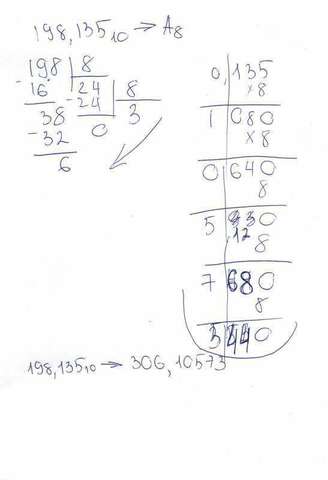 198,135₁₀ → A₈
198 | 8
- 16 | 24 | 8
38 - 24 | 3
- 32 0
6
0, | 135
× 8
1 | 080
× 8
0 | 640
8
5 | 120
8
7 | 680
8
3 | 440
198,135₁₀ → 306,10573